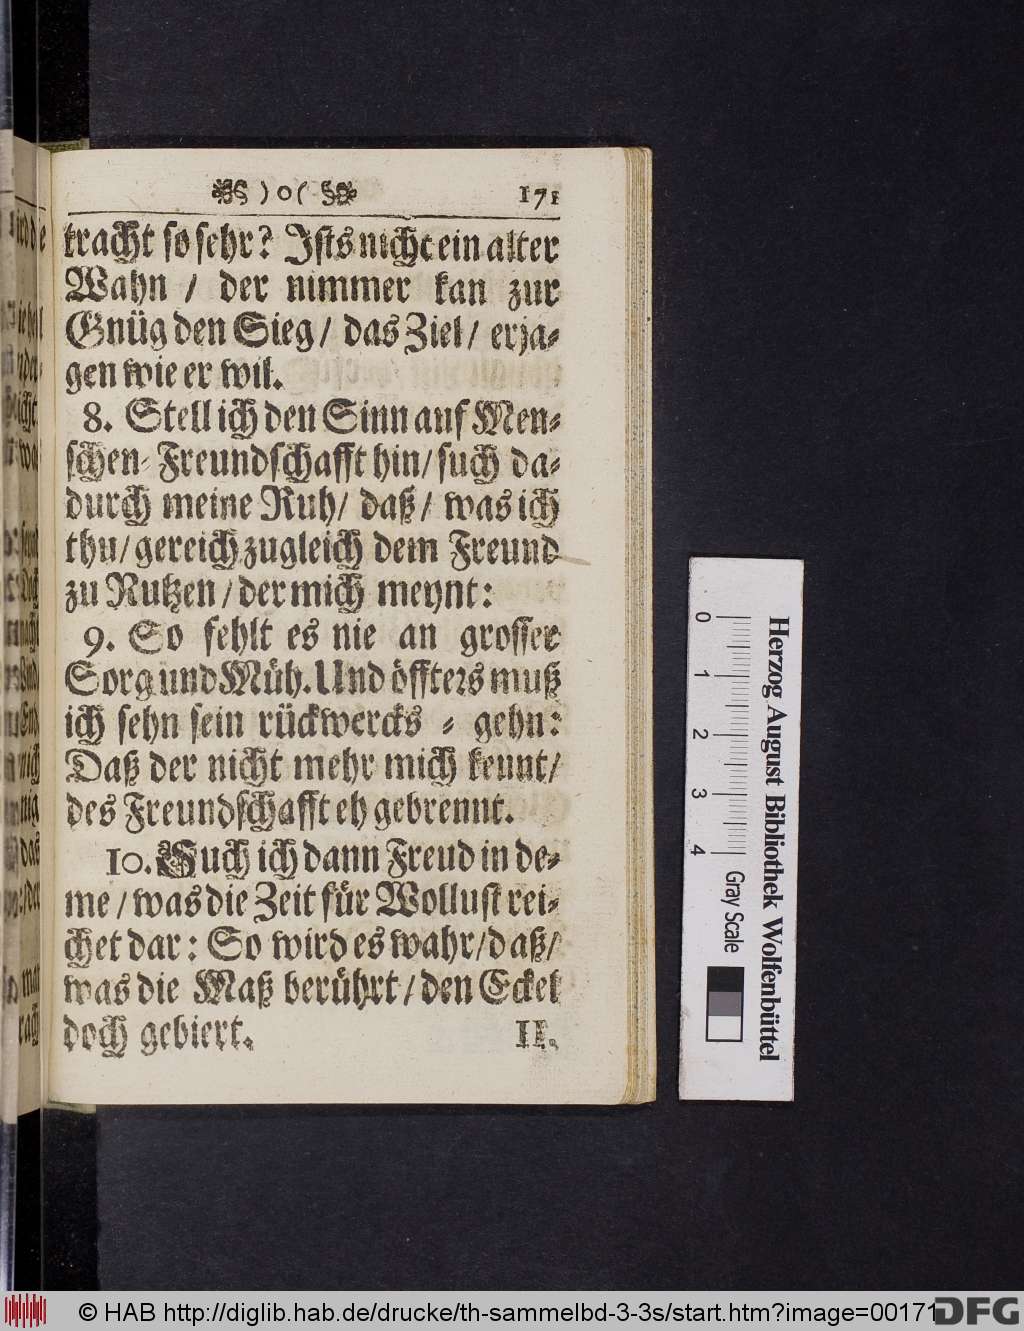 ) o ( 171
tracht so sehr? Ists nicht ein alter
Wahn / der nimmer kan zur
Gnüg den Sieg / das Ziel / erja-
gen wie er wil.
8. Stell ich den Sinn auf Men-
schen-Freundschafft hin / such da-
durch meine Ruh / daß / was ich
thu / gereich zugleich dem Freund
zu Nutzen / der mich meynt:
9. So fehlt es nie an grosser
Sorg und Müh. Und öffters muß
ich sehn sein rückwercks - gehn:
Daß der nicht mehr mich kennt /
des Freundschafft eh gebrennt.
10. Such ich dann Freud in de-
me / was die Zeit für Wollust rei-
chet dar: So wird es wahr / daß /
was die Maß berührt / den Eckel
doch gebiert. 11.
0 1 2 3 4
Gray Scale
Herzog August Bibliothek Wolfenbüttel
© HAB http://diglib.hab.de/drucke/th-sammelbd-3-3s/start.htm?image=00171
DFG